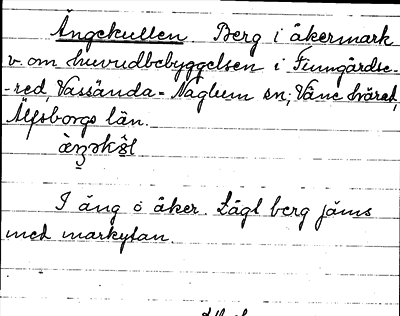 Ängekullen Berg i åkermark
v om huvudbebyggelsen i Finngårdse-
-red, Vassända-Naglum sn; Väne härad,
Älfsborgs län.
I äng o åker. Lågt berg jäms
med markytan.